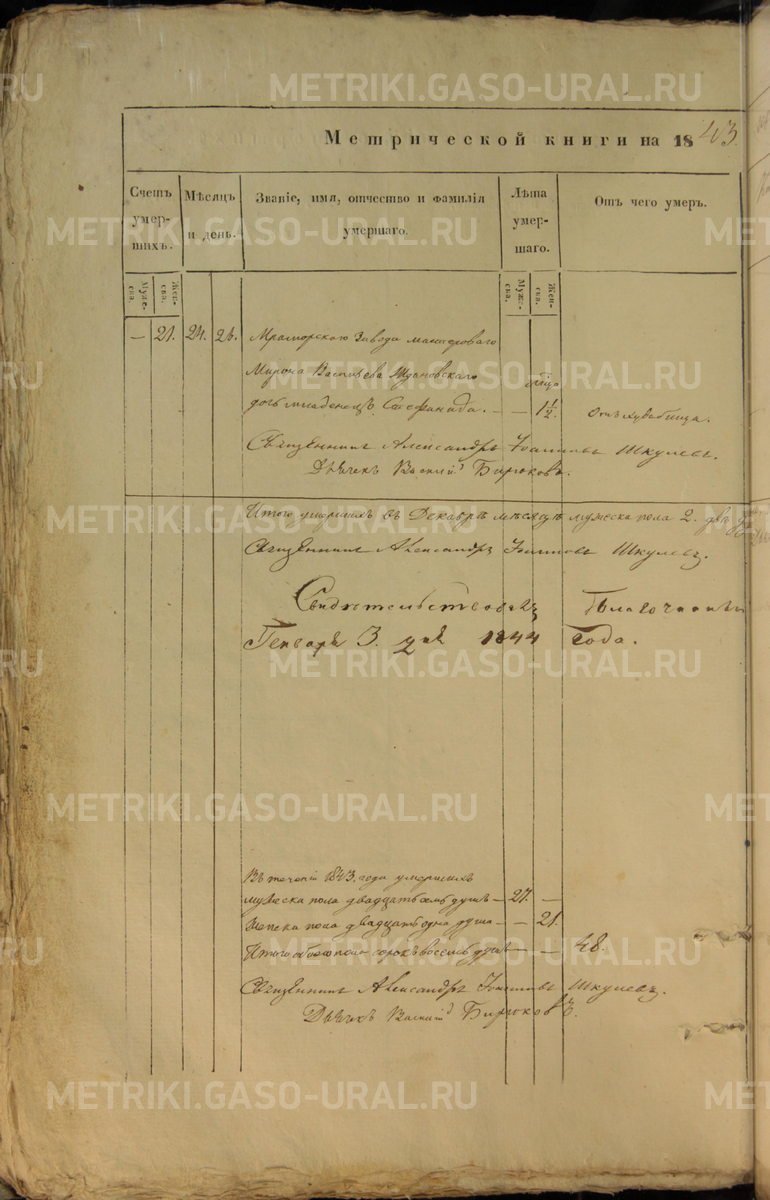 METRIKI.GASO-URAL.RU
Метрической книги на 1843.
Счетъ умершихъ.
Мѣсяцъ и день.
Званіе, имя, отчество и фамилія умершаго.
Лѣта умершаго.
Отъ чего умеръ.
Мужеска.
Женска.
Мужеска.
Женска.
— 21. 24. 26. Мраморскаго Завода мастероваго
Мирона Васильева
дочь младенецъ Стефанида. — 1 1/2.
Священникъ Александръ Іоанновъ Шкулевъ.
Дьячекъ Василій Бирюковъ.
Итого умершихъ въ Декабрѣ мѣсяцѣ мужеска пола 2. два
Священникъ Александръ Іоанновъ Шкулевъ.
Свидѣтельствовалъ Благочинный
Генваря 3. дня 1844 года.
Въ теченіи 1843. года умершихъ
мужеска пола двадцать семь душъ — 27. —
женска пола двадцать одна душа — — 21.
Итого обоего пола сорокъ восемь душъ — — 48.
Священникъ Александръ Іоанновъ Шкулевъ.
Дьячекъ Василій Бирюковъ.